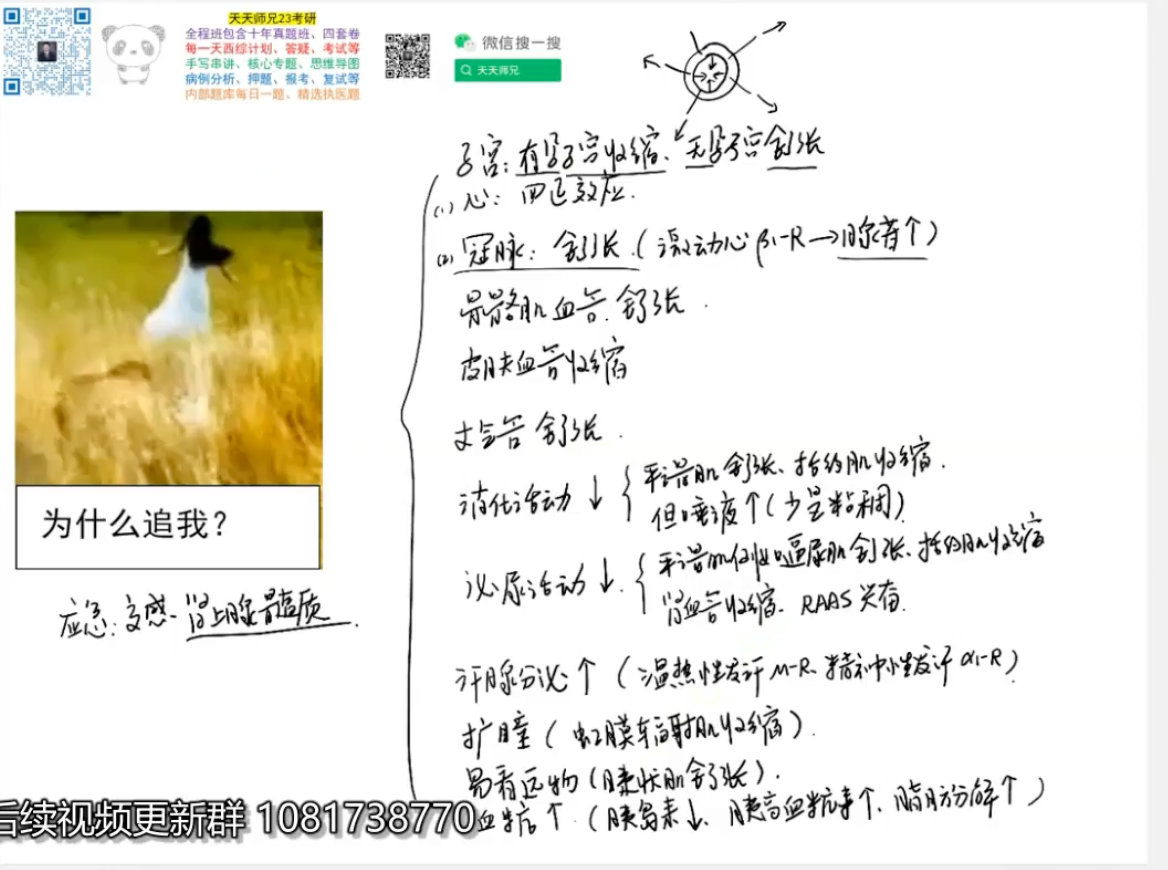 天天师兄23考研
全程班包含十年真题班、四套卷
每一天西综计划、答疑、考试等
手写串讲、核心专题、思维导图
病例分析、押题、报考、复试等
内部题库每日一题、精选执医题
微信搜一搜
天天师兄
子宫: 有孕子宫收缩、无孕子宫舒张
(1) 心: 四正效应.
(2) 冠脉: 舒张.(激动心β1-R→腺苷↑)
骨骼肌血管.舒张.
皮肤血管收缩
支气管舒张.
消化活动↓
平滑肌舒张、括约肌收缩.
但唾液↑(少量粘稠).
泌尿活动↓.
平滑肌例如逼尿肌舒张、括约肌收缩
肾血管收缩、RAAS兴奋.
汗腺分泌↑(温热性发汗M-R、精神性发汗α1-R)
扩瞳(虹膜辐射肌收缩).
易看远物(睫状肌舒张).
血糖↑.(胰岛素↓、胰高血糖素↑、脂肪分解↑)
为什么追我?
应急: 交感-肾上腺髓质.
后续视频更新群 1081738770